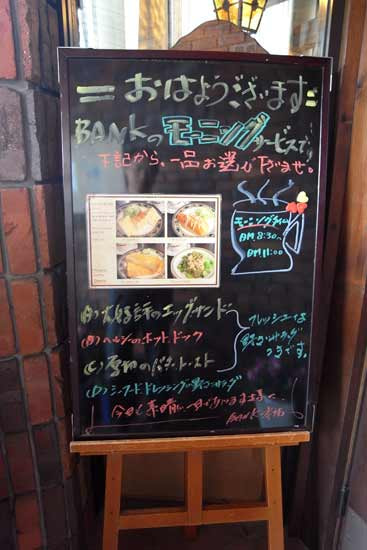 = おはようございます =
BANKの モーニングサービスです
下記から、一品お選び下さいませ。
モーニングタイム
AM 8:30~
AM 11:00
(A) 大好評のエッグサンド
(B) ヘルシーのホットドック
(C) 厚切のバタートースト
(D) シーフードドレッシングの野菜サラダ
フレッシュな
野菜サラダ
つきです。
今日も素晴しい一日であります様に、
BANK